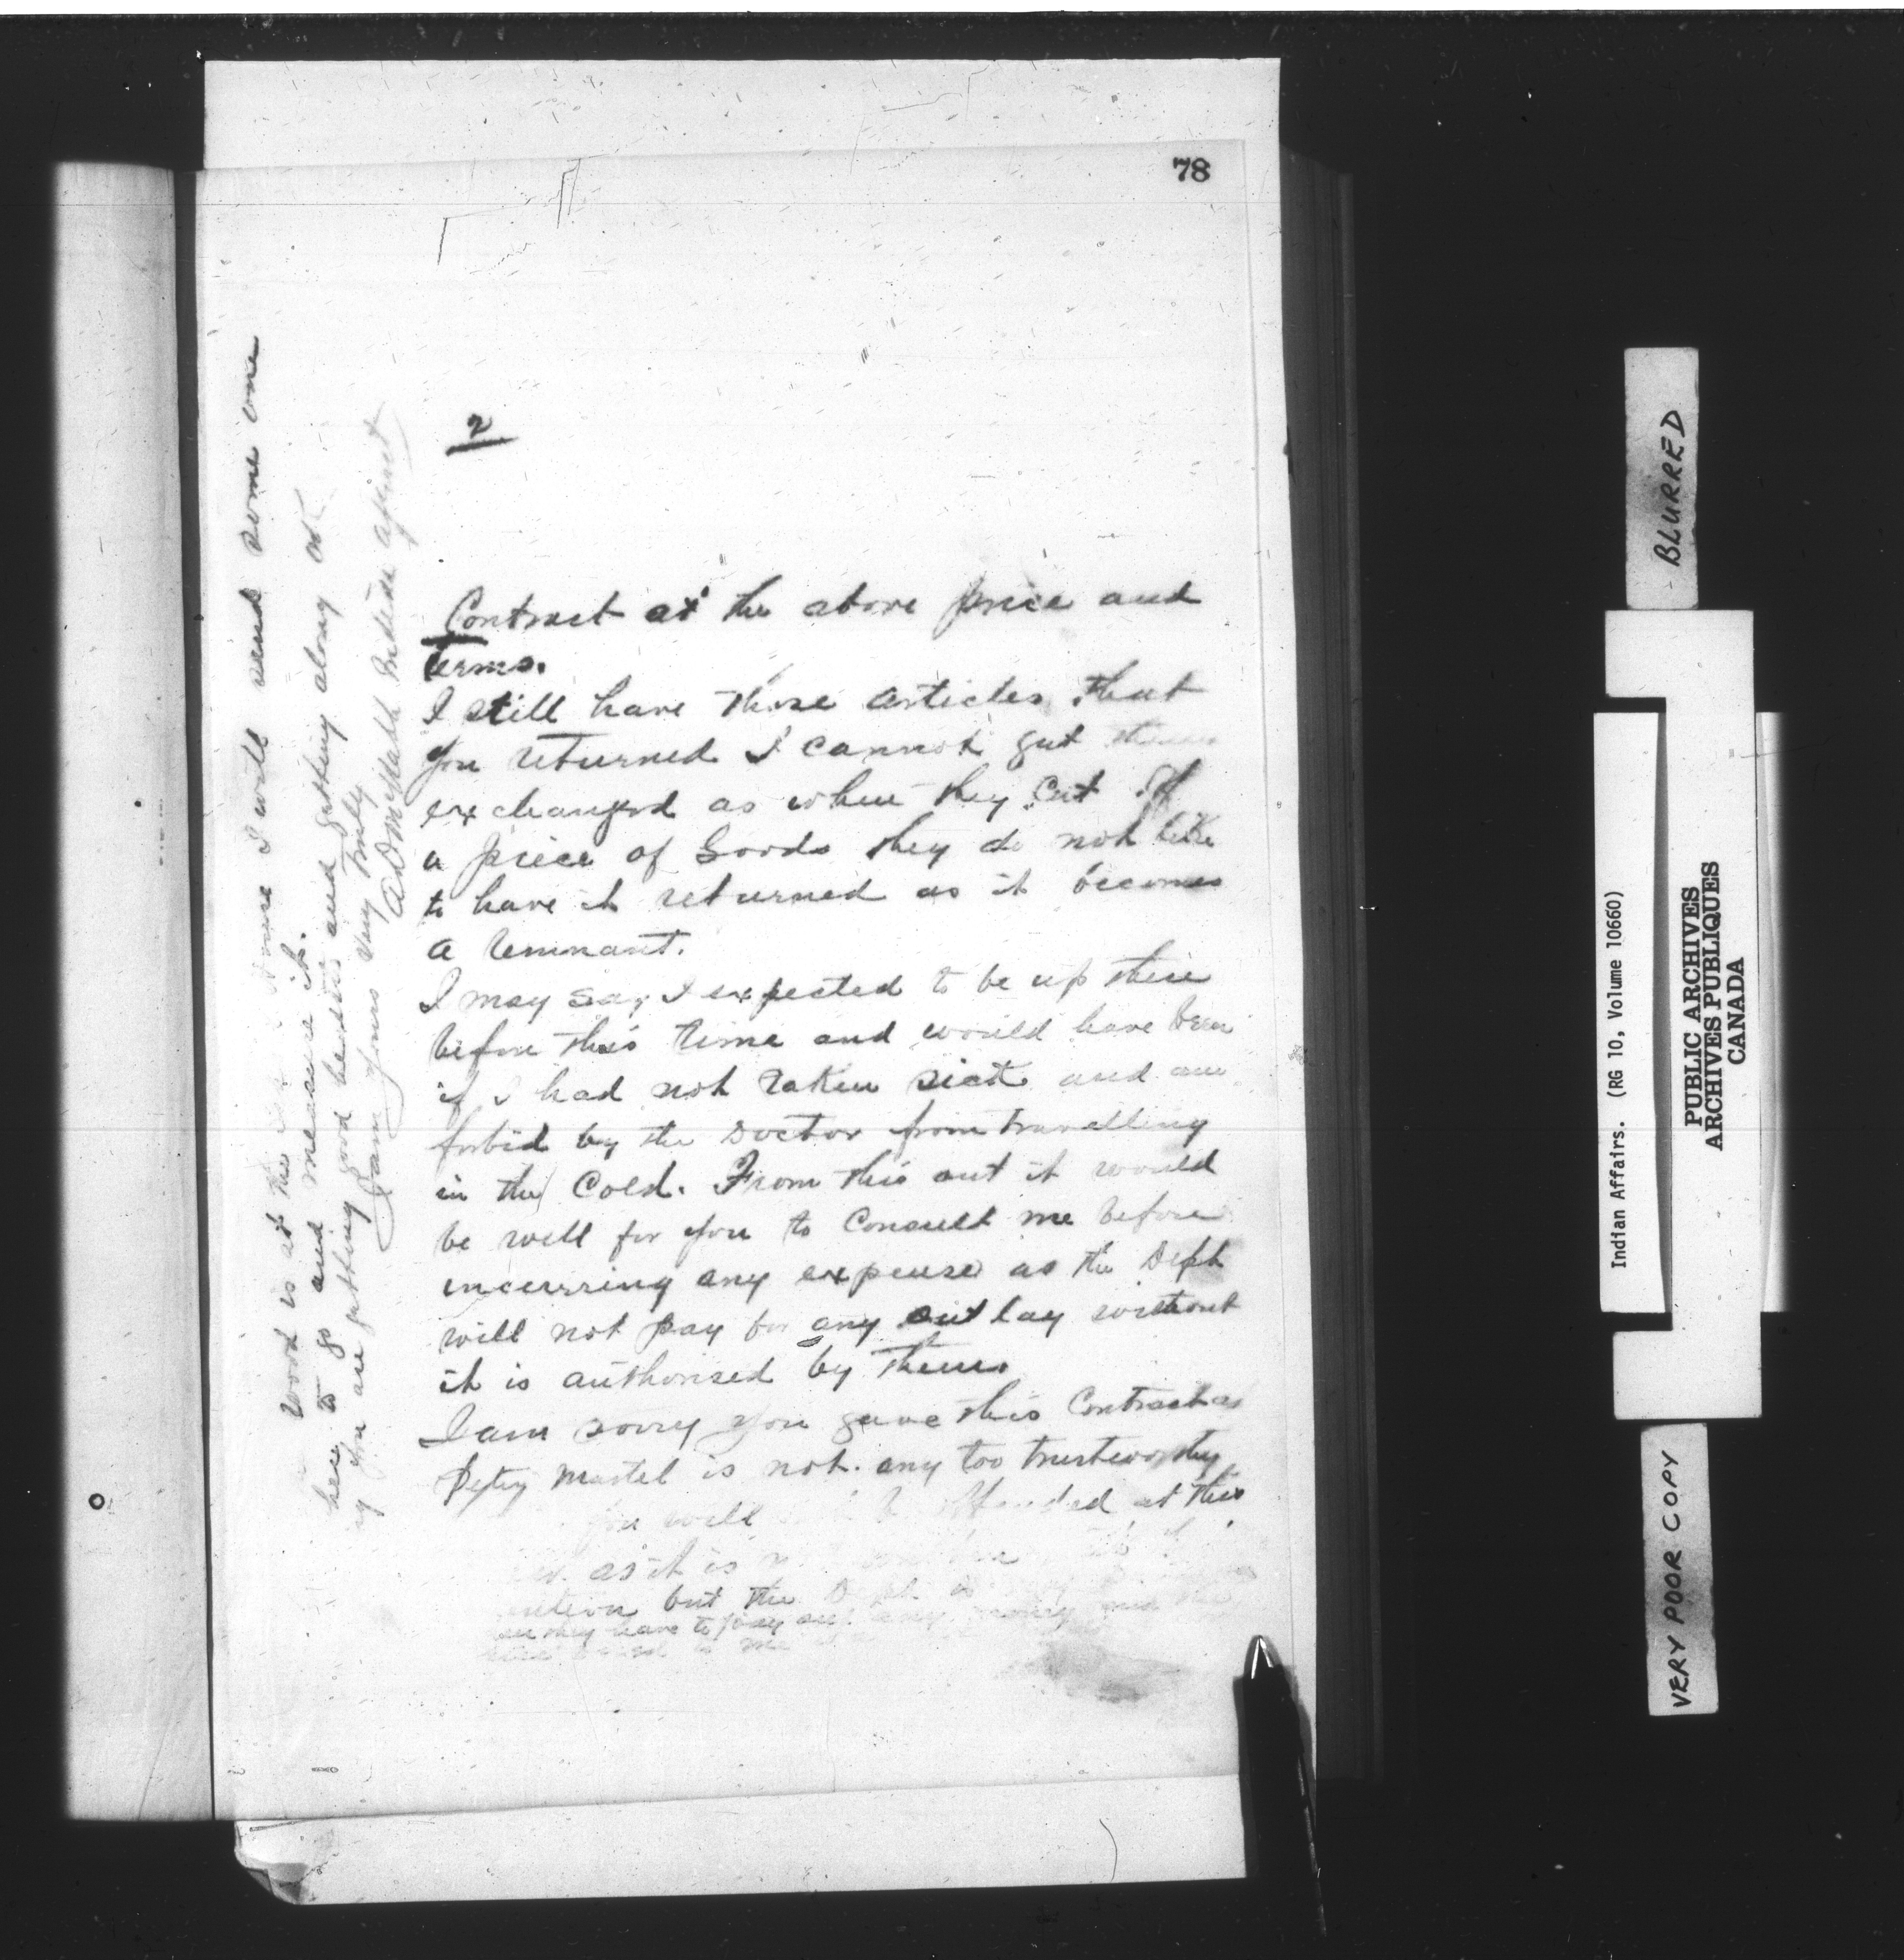 78
2
Contract at the above price and
terms.
I still have those articles that
you returned I cannot get them
exchanged as when they cut off
a piece of Goods they do not like
to have it returned as it becomes
a remnant.
I may say I expected to be up there
before this time and would have been
if I had not taken sick and am
forbid by the Doctor from travelling
in the Cold. From this out it would
be well for you to Consult me before
incurring any expense as the Dept
will not pay for any outlay without
it is authorised by them.
I am sorry you gave this Contract as
Martel is not any too trustworthy
you will offended at this
as it is
but the
they have to pay out any money
wood is at the house I will send some one
here to go and measure it.
if you are getting good health and getting along ok
I am yours very Truly
Indian Agent
BLURRED
Indian Affairs. (RG 10, Volume 10660)
PUBLIC ARCHIVES
ARCHIVES PUBLIQUES
CANADA
VERY POOR COPY